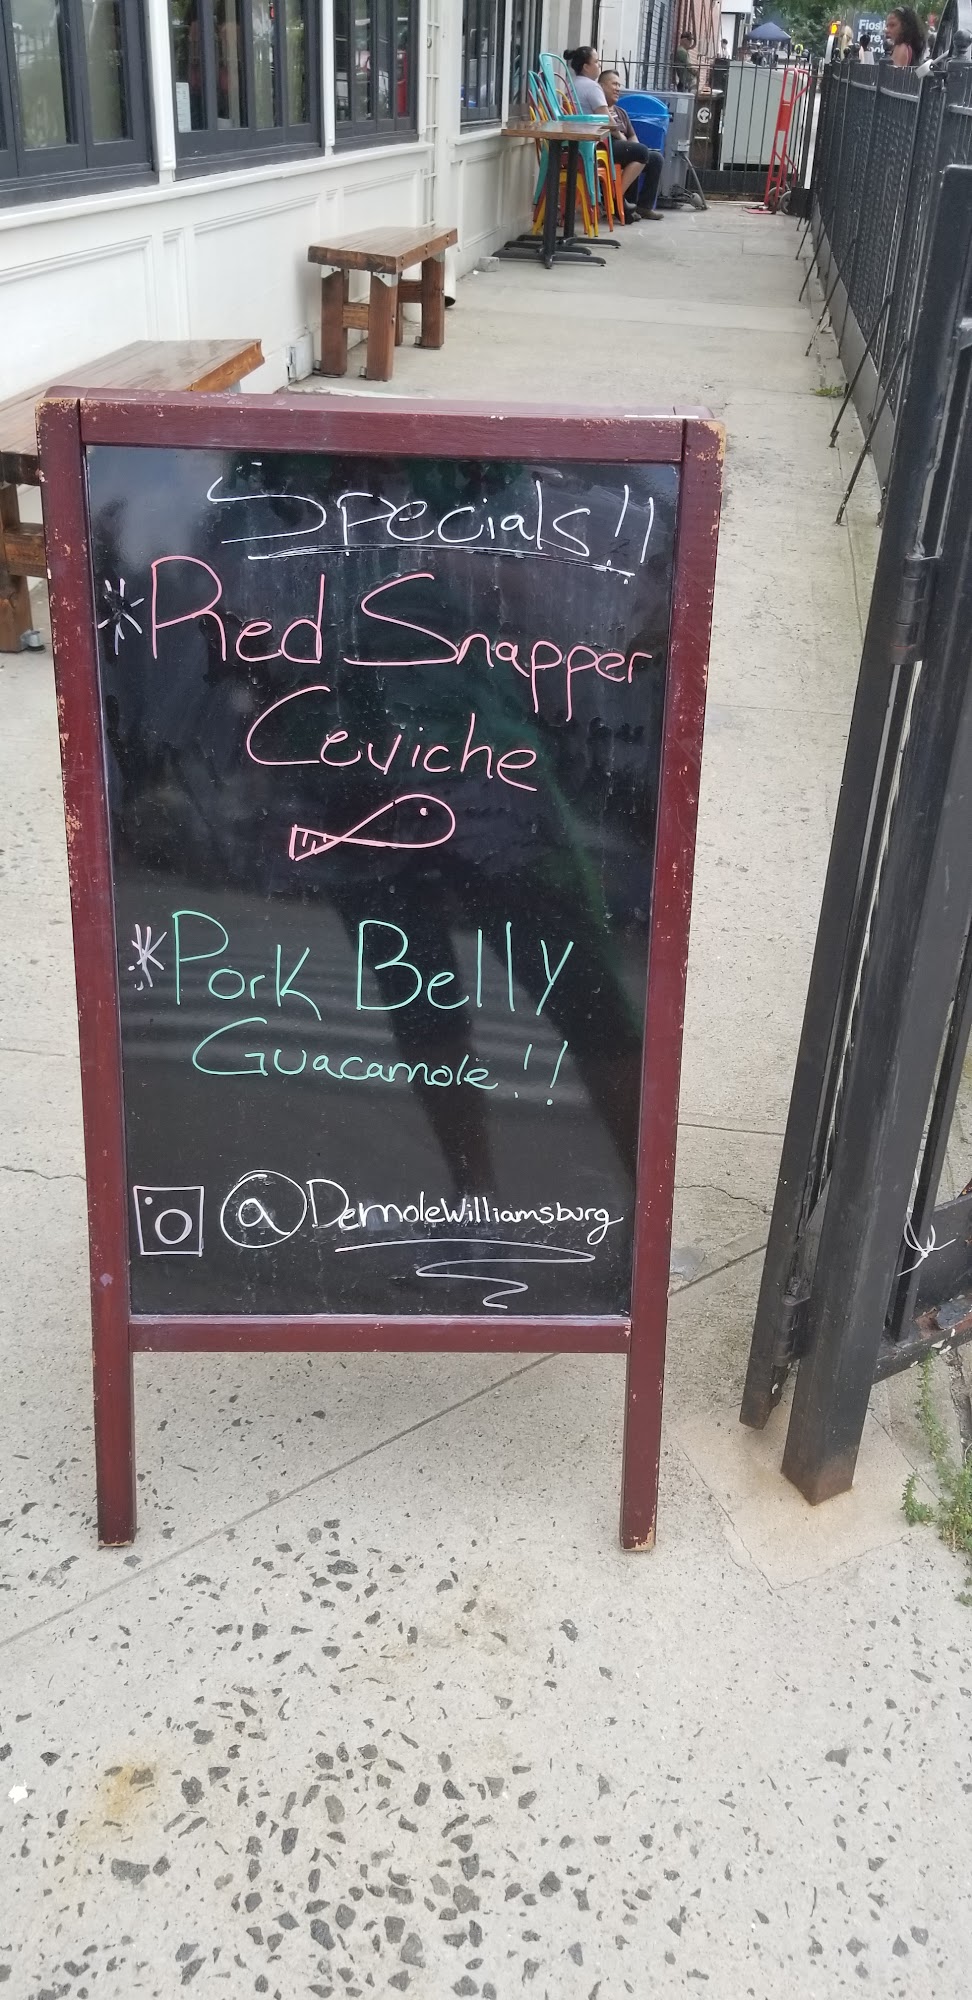 Specials!!
*Red Snapper
Ceviche
*Pork Belly
Guacamole!!
@DemoleWilliamsburg
Fios